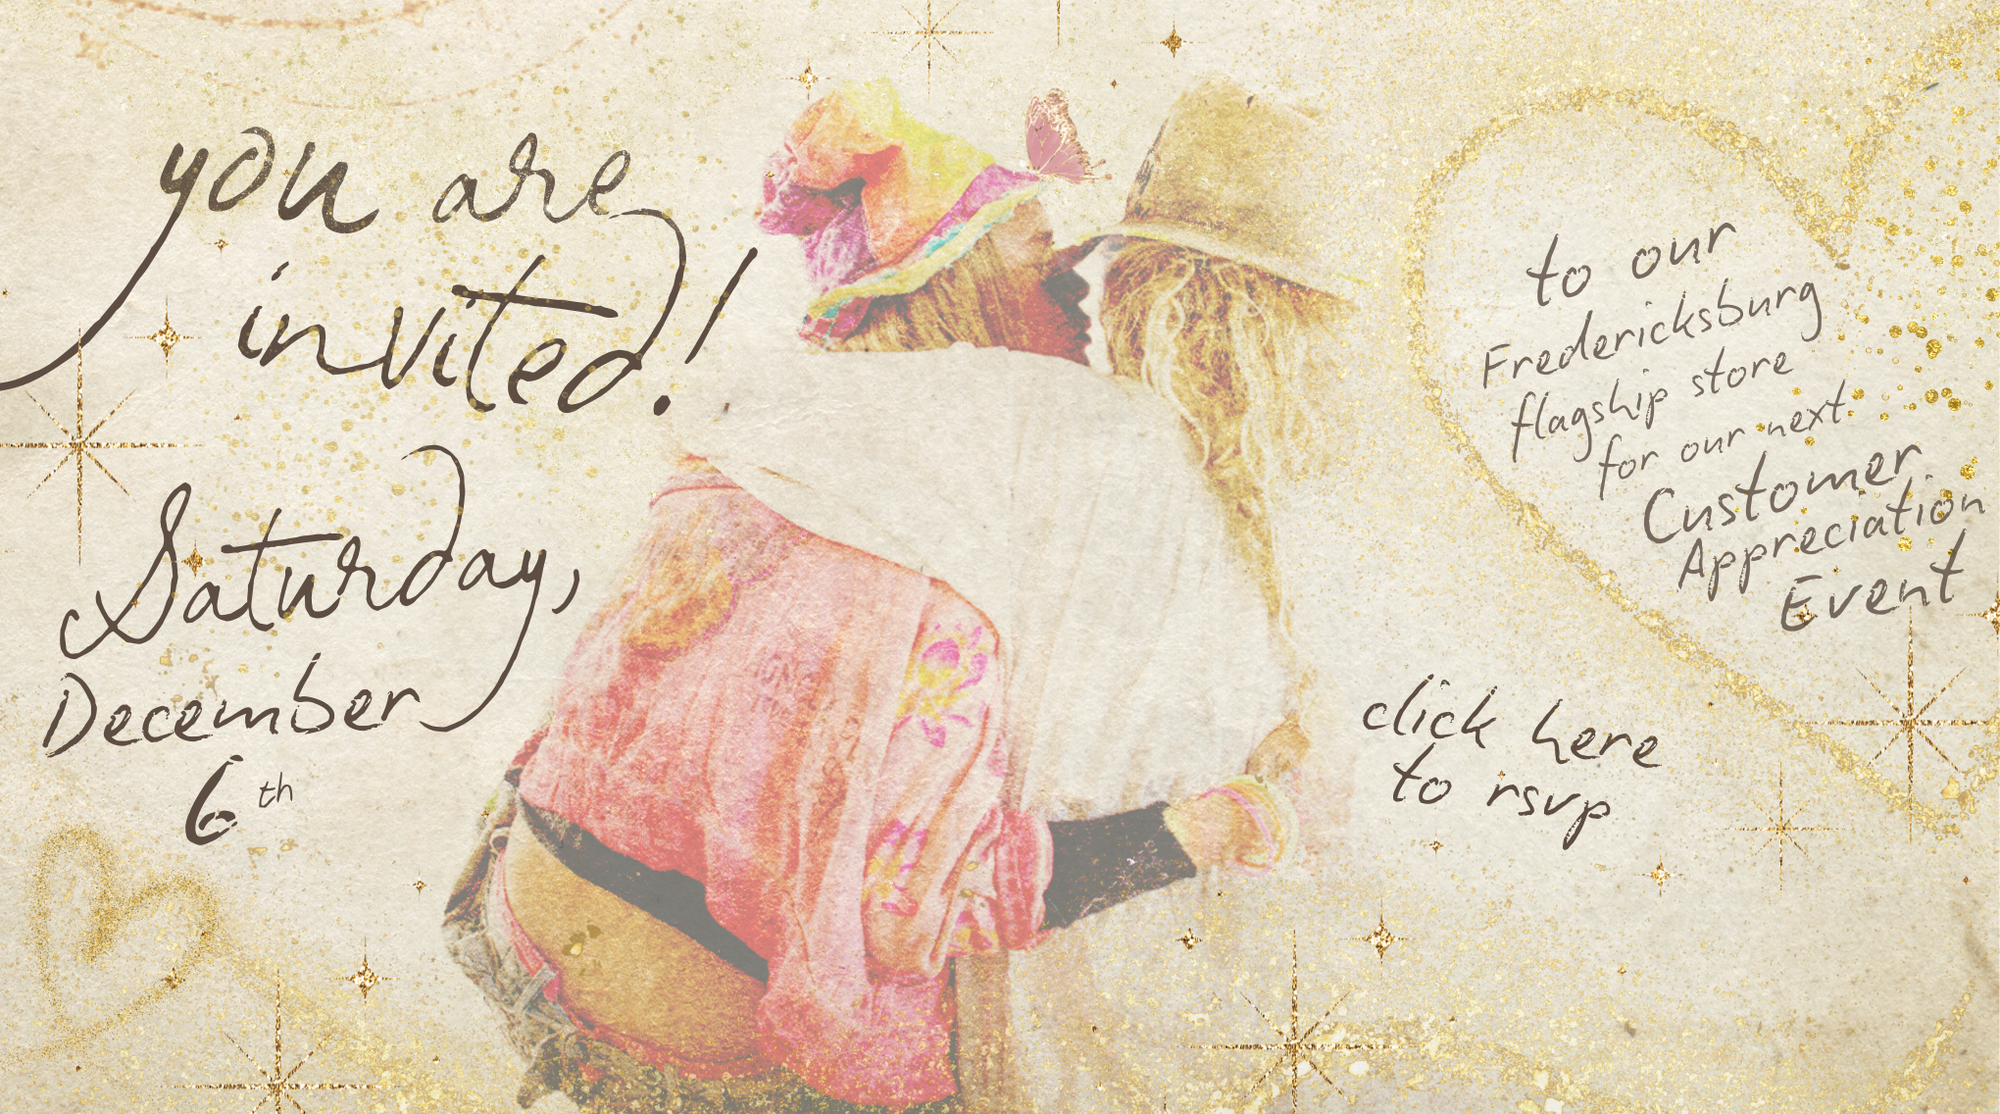 you are
invited!
Saturday,
December
6th
to our
Fredericksburg
flagship store
for our next
Customer
Appreciation
Event
click here
to rsvp